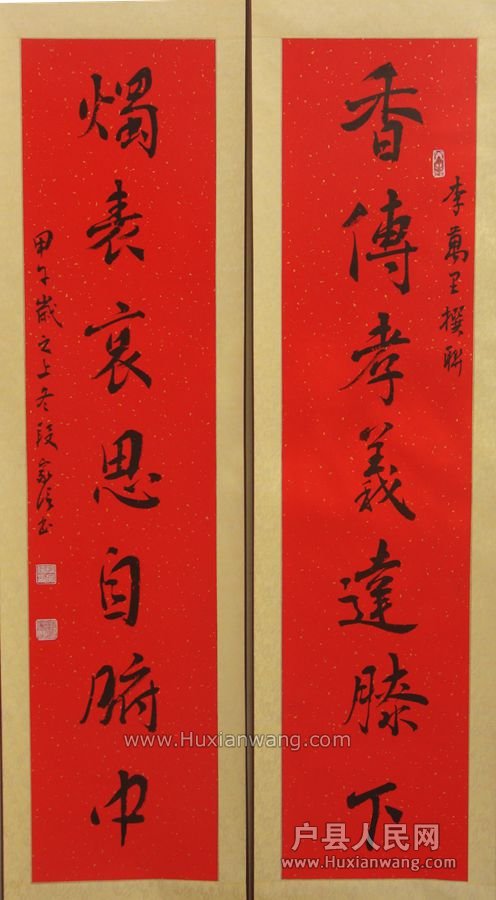 香傳孝義達膝下
李萬里撰聯
燭表哀思自腑中
甲午歲之上冬段家信书
www.Huxianwang.com
户县人民网
www.Huxianwang.com